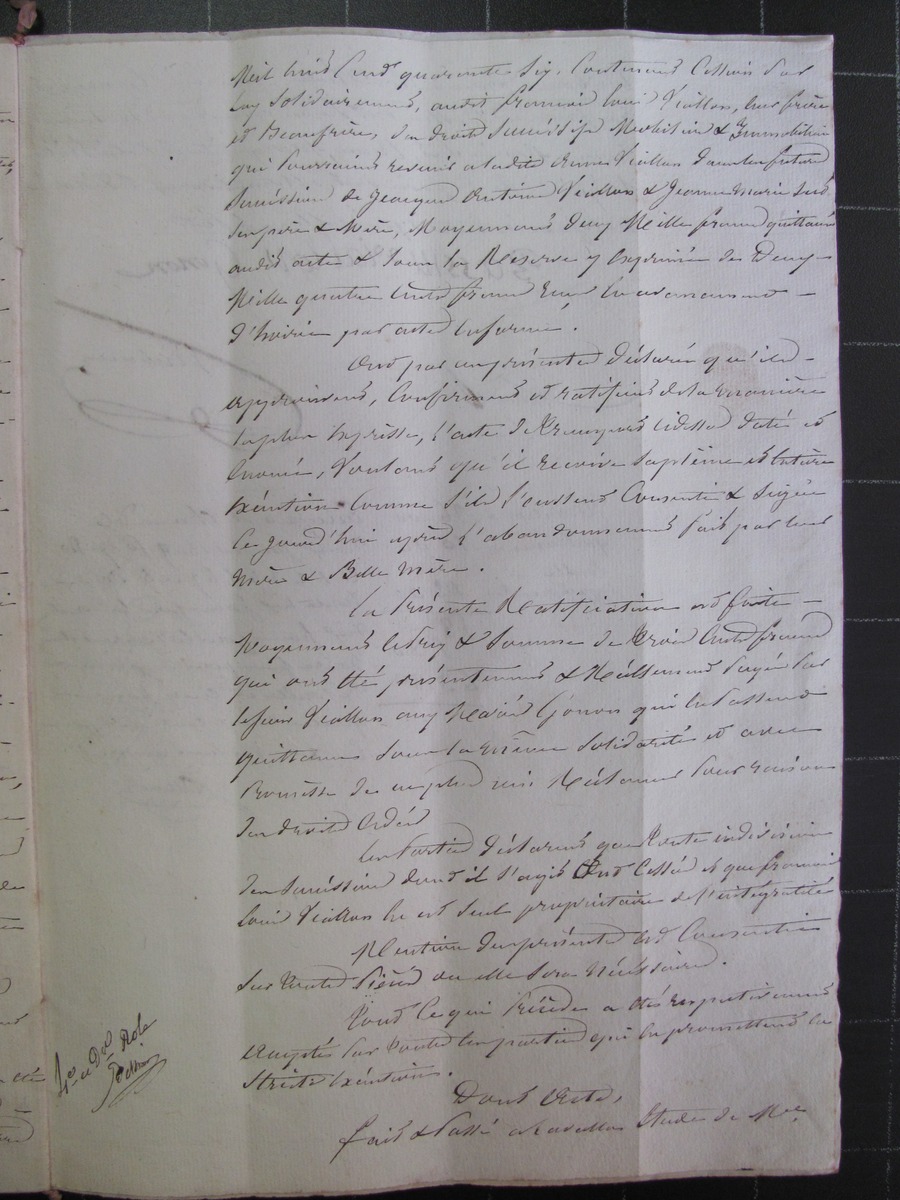 Mil huit Cent quarante Six, Contenant Cession par
Eux Solidairement, audit françois Louis Viallon, leur frère
et Beaufrère, des droits Successifs Mobiliers & Immobiliers
qui pourraient revenir a ladite dame Viallon dans les futures
Successions de Jacques Antoine Viallon & Jeanne Marie
Ses père & Mère, Moyennant Deux Mille francs quittancés
audit acte & Sous la Réserve y Exprimée de Deux
Mille quatre Cents francs reçus en avancement
d'hoirie par acte Enformé.
Ont par ces présentes déclaré qu'ils
approuvent, Confirment et ratifient de la manière
la plus Expresse, l'acte de Vente ci dessus daté et
Enoncé, Voulant qu'il reçoive Sa pleine et Entière
Exécution Comme S'ils l'eussent Consenti & Signé
Ce jourd'hui après l'abandonnement fait par leur
Mère & Belle Mère.
La Présente Ratification est faite
Moyennant le Prix & Somme de Trois Cents francs
qui ont été présentement & Réellement payés par
le Sieur Viallon aux Mariés Gonon qui lui en passent
quittance Sous la même Solidarité et avec
Promesse de ne plus rien Réclamer pour raison
des droits Cédés
Les Parties déclarent que Toute indivision
des Successions dont il S'agit Est Cessée et que françois
Louis Viallon en est Seul propriétaire de l'intégralité
Mention des présentes est Consentie
Sur Toutes Pièces ou elle Sera Nécessaire.
Tout Ce qui Précède a été respectivement
accepté par Toutes les parties qui en promettent la
Stricte Exécution.
Dont Acte,
fait & Passé a Etude de Me